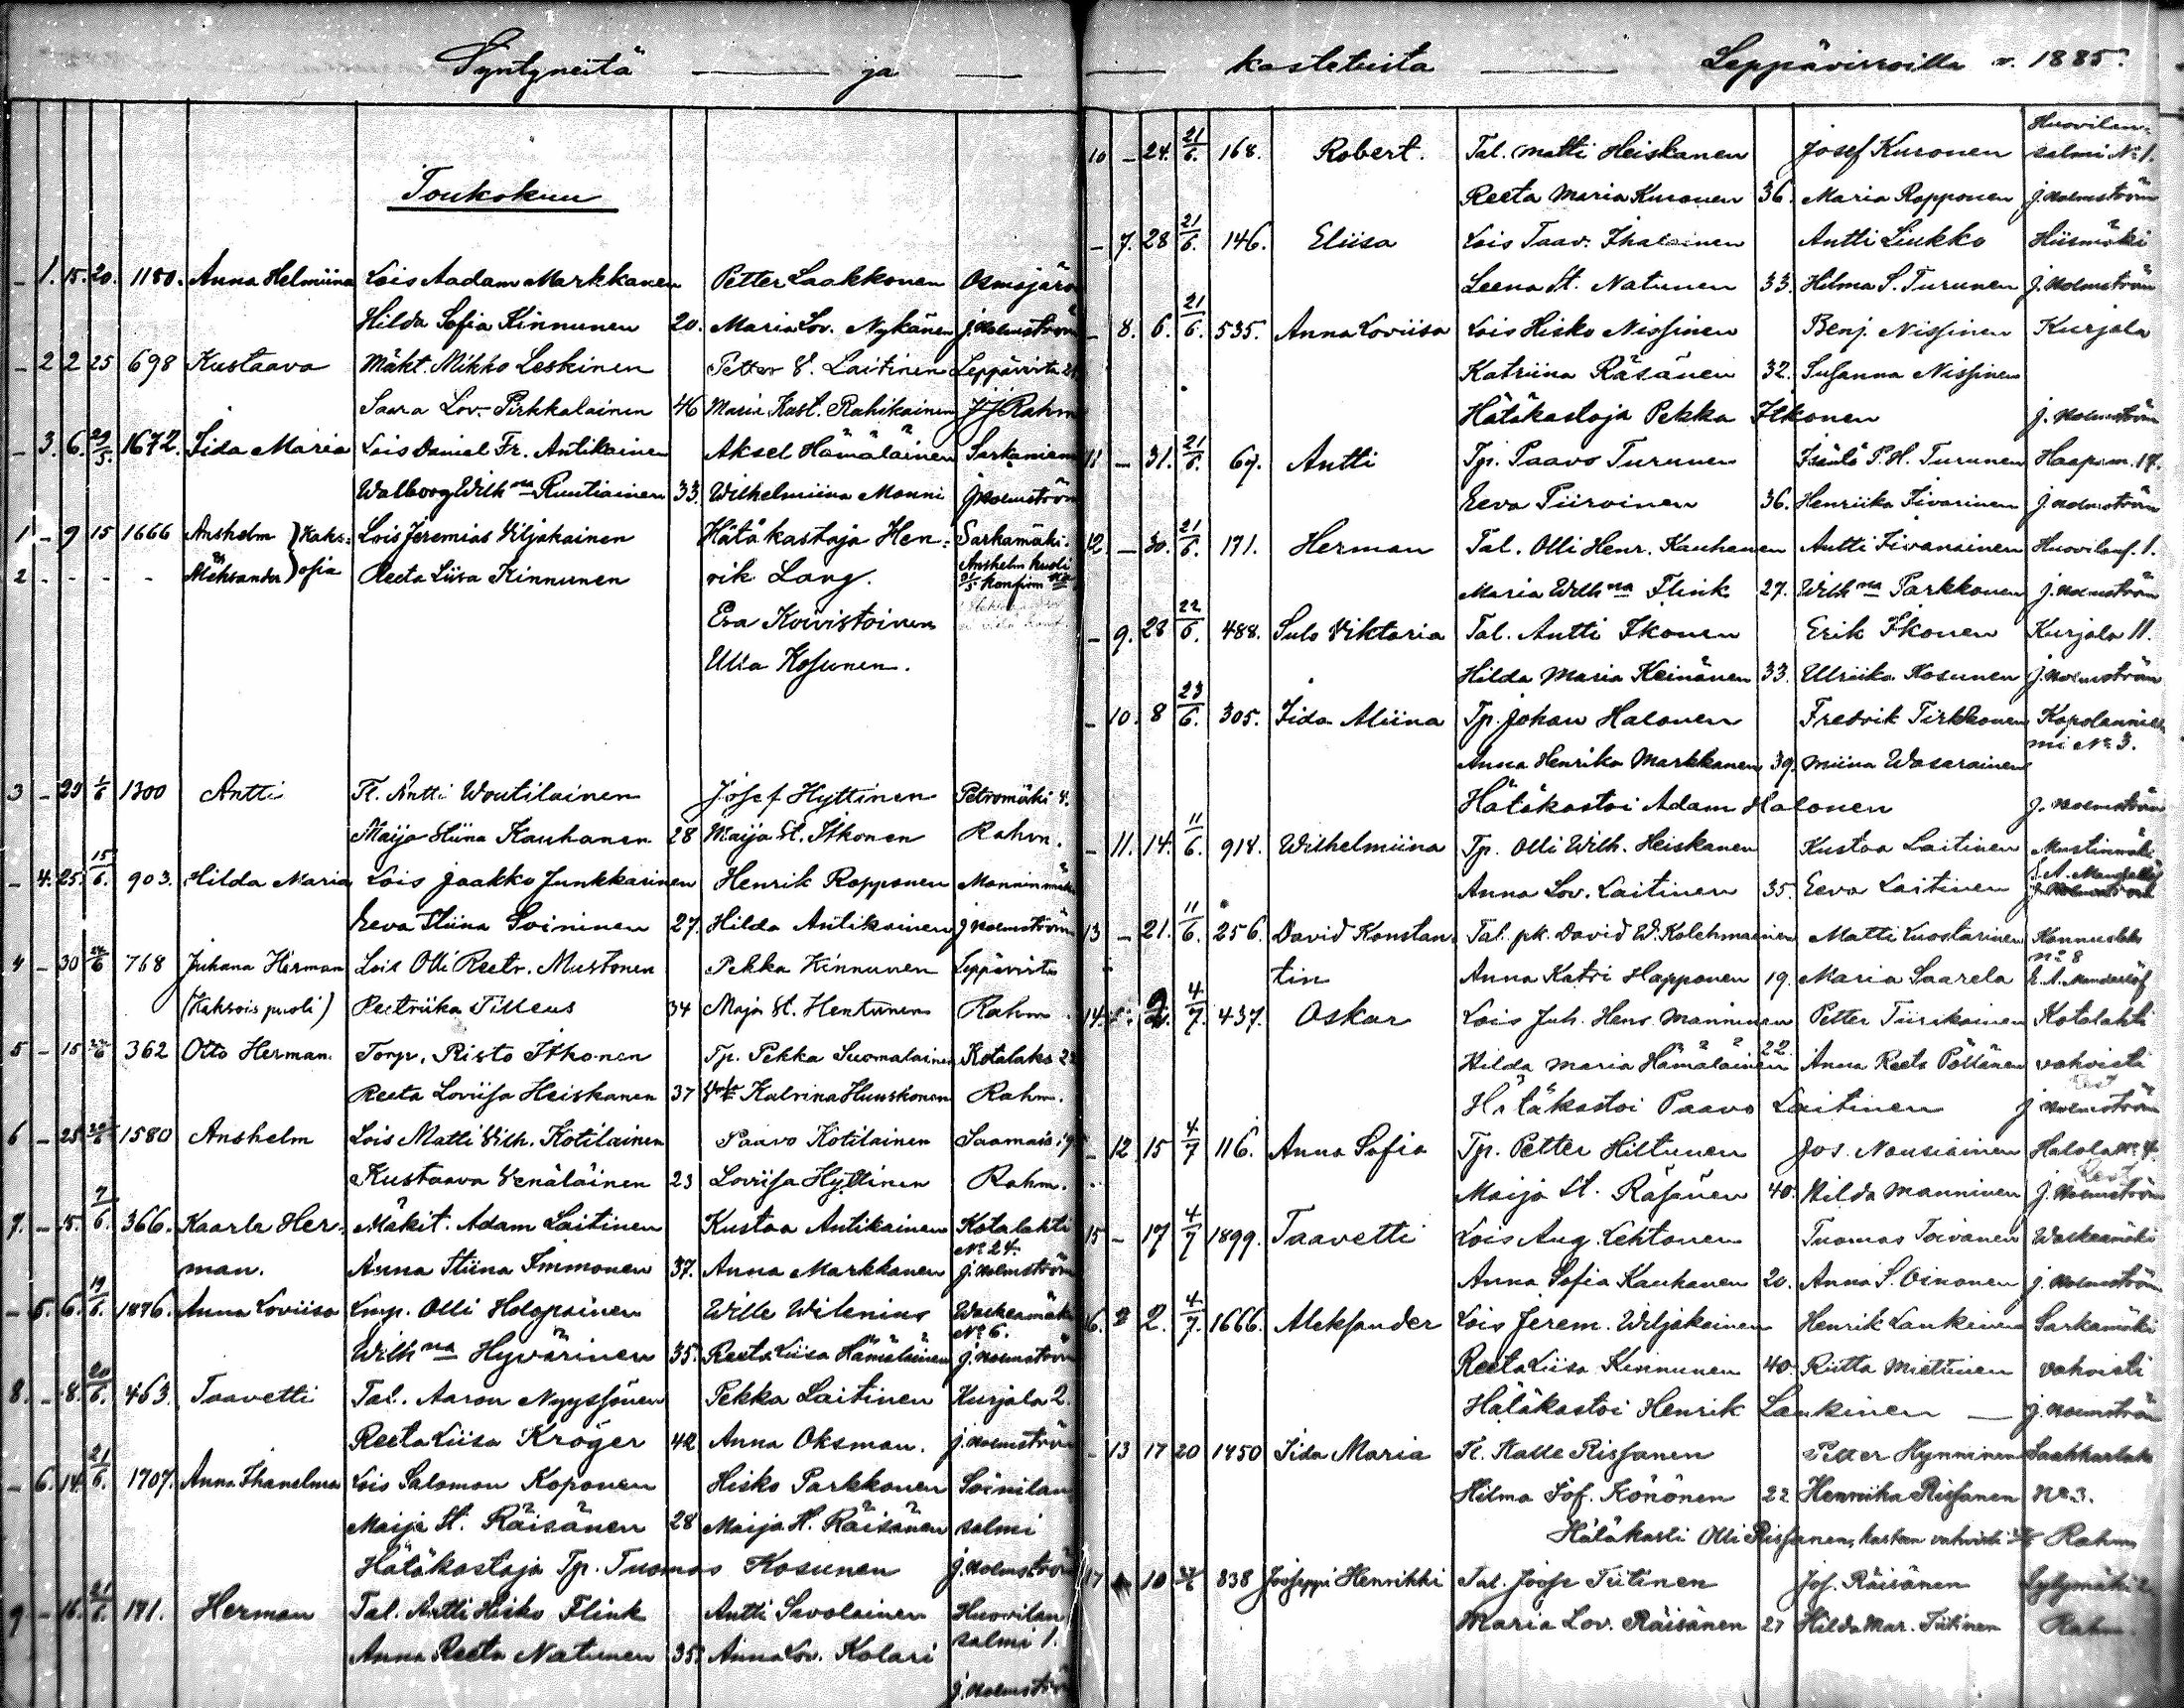 Syntyneitä — ja —
Toukokuu
- 1. 15. 20. 1180. Anna Helmiina Lois Aadam Markkanen Petter Laakkonen Osmajärvi
Hilda Sofia Kinnunen 20. Maria Lov. Nykänen J. Holmström
- 2 2 25 698 Kustaava Mäkt. Mikko Leskinen Petter V. Laitinen Leppävirta
Saara Lov. Pirkkalainen 46 Maria Kust. Rahikainen J J Rahm
- 3. 6. 29/5. 1672. Iida Maria Lois Daniel Fr. Antikainen Aksel Hämäläinen Sarkaniemi
Walborg Wilhna Ruutiainen 33. Wilhelmiina Monni J Holmström
1 - 9 15 1666 Anshelm } Kaks- Lois Jeremias Viljakainen Hätäkastaja Hen- Sarkamäki.
2 - - - - Aleksander } osia Reeta Liisa Kinnunen rik Lang. Anshelm kuoli
Eva Koivistoinen
Ulla Kosunen.
3 - 29 1/6 1300 Antti Tl. Antti Woutilainen Josef Hyttinen Petromäki 4.
Maija Stiina Kauhanen 28 Maija St. Itkonen Rahm.
- 4. 25. 15/6. 903. Hilda Maria Lois Jaakko Junkkarinen Henrik Ropponen Monninmäki
Eeva Stiina Soininen 27. Hilda Antikainen J Holmström
4 - 30 24/6 768 Juhana Herman Lois Olli Reetr. Mustonen Pekka Kinnunen Leppävirta
(Kaksois puoli) Reetriika Tilleus 34 Maja St. Hentunen Rahm
5 - 15 24/6 362 Otto Herman. Torp. Risto Itkonen Tp. Pekka Suomalainen Kotalaks
Reeta Loviisa Heiskanen 37 Katrina Huuskonen Rahm.
6 - 25 1580 Anshelm Lois Matti Vilh. Kotilainen Paavo Kotilainen Saamais. 19
Kustaava Venäläinen 23 Loviisa Hyttinen Rahm.
7. - 5. 7/6. 366. Kaarle Her- Mäkit. Adam Laitinen Kustaa Antikainen Kotalahti No 24.
man. Anna Stiina Immonen 37. Anna Markkanen J. Holmström
- 5. 6. 19/6. 1876. Anna Loviisa Lmp. Olli Holopainen Wille Wilenius Waskeamäki No 6.
Wilhna Hyvärinen 35. Reeta Liisa Hämäläinen J. Holmström
8. - 8. 20/6. 463. Taavetti Tal. Aaron Nyyssönen Pekka Laitinen Kurjala 2.
Reeta Liisa Kröger 42 Anna Oksman. J. Holmström
- 6. 14. 21/6. 1707. Anna Ihanelma Lois Salomon Koponen Hisko Parkkonen Soinilan
Maija St. Räisänen 28 Maija H. Räisänen salmi
Hätäkastaja Tp. Tuomas Kosunen J. Holmström
9 - 16. 21/6. 171. Herman Tal. Antti Hisko Flink Antti Savolainen Huovilan
Anna Reeta Natunen 35. Anna Lov. Kolari salmi 1.
J. Holmström
— kastetuita — Leppävirroilla v. 1885.
10 - 24. 21/6. 168. Robert. Tal. Matti Heiskanen Josef Kuronen Huovilan-
salmi No 1.
Reeta Maria Kuronen 36. Maria Ropponen J. Holmström
- 7. 28 21/6. 146. Eliisa Lois Taav. Ihalainen Antti Liukko Hiismäki
Leena St. Natunen 33. Hilma S. Turunen J. Holmström
- 8. 6. 21/6. 535. Anna Loviisa Lois Hisko Nissinen Benj. Nissinen Kurjala
Katriina Räsänen 32. Susanna Nissinen
Hätäkastaja Pekka Itkonen J. Holmström
11 - 31. 21/6. 67. Antti Tp. Paavo Turunen P. H. Turunen Haapam. 17.
Eeva Tiirvinen 36. Henriika Iivarinen J. Holmström
12. - 30. 21/6. 171. Herman Tal. Olli Henr. Kauhanen Antti Iivanainen Huovilans. 1.
Maria Wilhna Flink 27. Wilhna Parkkonen J. Holmström
- 9. 28 22/6. 488. Sulo Viktoria Tal. Antti Ikonen Erik Ikonen Kurjala 11.
Hilda Maria Keinänen 33. Ulriika Kosunen J. Holmström
- 10. 8 23/6. 305. Iida Aliina Tp. Johan Halonen Fredrik Tirkkonen
mi No 3.
Anna Henrika Markkanen 39. Miina Wasarainen
Hätäkastoi Adam Halonen J. Holmström
- 11. 14. 11/6. 914. Wilhelmiina Tp. Olli Wilh. Heiskanen Kustaa Laitinen Mustinmäki
Anna Lov. Laitinen 35. Eeva Laitinen
13 - 21. 11/6. 256. David Konstan- Tal. pk. David W. Kolehmainen Matti Luostarinen Konnuslaks
No 8
tin Anna Katri Happonen 19. Maria Saarela E. A. Manderlöf
14. 2. 4/7. 437. Oskar Lois Juh. Henr. Manninen Petter Tiirikainen Kotalahti
Hilda Maria Hämäläinen 22. Anna Reeta Pöllänen vahvisti
Hätäkastoi Paavo Laitinen J Holmström
- 12 15 4/7 116. Anna Sofia Tp. Petter Hiltunen Jos. Nousiainen Halola No 4.
Maija St. Räsänen 40. Hilda Manninen J. Holmström
15 - 17 4/7 1899. Taavetti Lois Aug. Lehtonen Tuomas Toivanen Waskeamäki
Anna Sofia Kauhanen 20. Anna S. Oinonen J. Holmström
16. 2 2. 4/7. 1666. Aleksander Lois Jerem. Wiljakainen Henrik Laukinen Sarkamäki
Reeta Liisa Kinnunen 40. Riitta Miettinen vahvisti
Hätäkastoi Henrik Laukinen — J. Holmström
- 13 17 20 1450 Iida Maria Tl. Kalle Rissanen Petter Hynninen Saahkarlaks
Hilma Sof. Könönen 22 Henriika Rissanen No 3.
Hätäkasti Olli Rissanen, kasteen vahvisti Rahm
17 10 838 Jooseppi Henrikki Tal. Joose Tiitinen Jos. Räisänen Sylymäki 2
Maria Lov. Räisänen 27 Hilda Mar. Tiitinen Rahm.